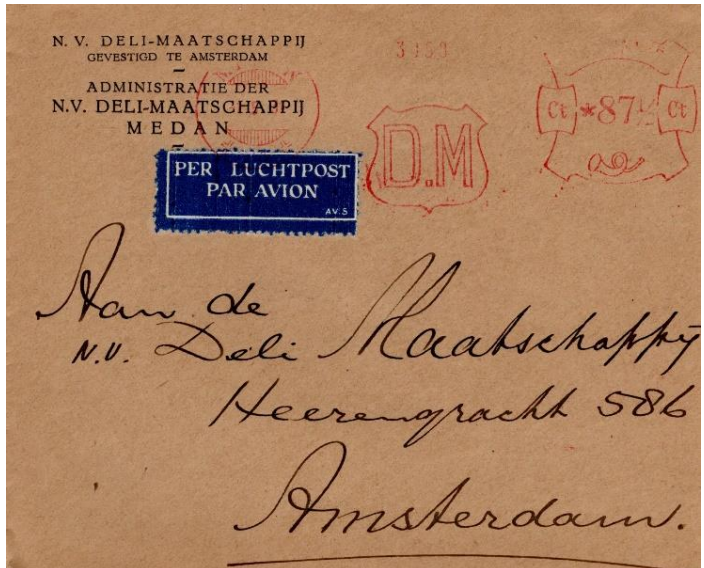 N. V. DELI-MAATSCHAPPIJ
GEVESTIGD TE AMSTERDAM
ADMINISTRATIE DER
N.V. DELI-MAATSCHAPPIJ
MEDAN
D.M
Ct *87½ Ct
PER LUCHTPOST
PAR AVION
AV 5
Aan de
N.V. Deli Maatschappij
Heerengracht 586
Amsterdam.